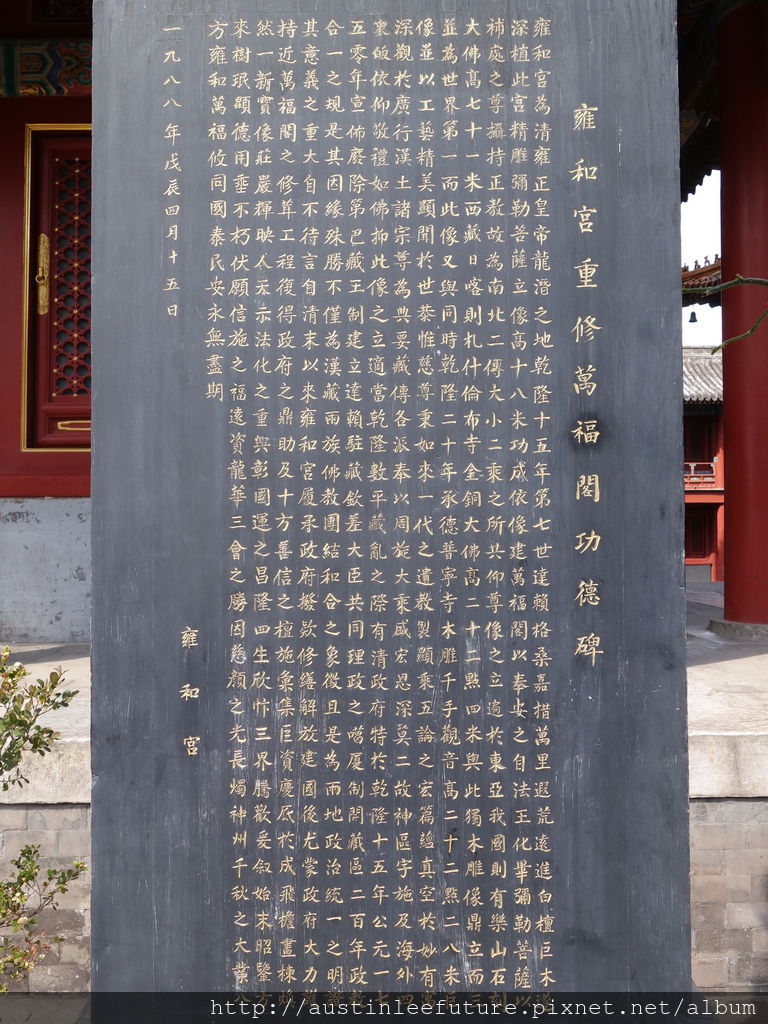 雍和宮重修萬福閣功德碑
雍和宮為清雍正皇帝龍潛之地乾隆十五年第七世達賴格桑嘉措萬里遐荒遠進白檀巨木遂
深植此宮精雕彌勒菩薩立像高十八米功成依像建萬福閣以奉安之自法王化畢彌勒菩薩以
補處之尊攝持正教故為南北二傳大小二乘之所共仰尊像之立遍於東亞我國則有樂山石刻
大佛高七十一米西藏日喀則札什倫布寺金銅大佛高二十二點四米與此獨木雕像鼎立而三
並為世界第一而此像又與同時乾隆二十年承德普寧寺木雕千手觀音高二十二點二八米巨
像並以工藝精美顯聞於世恭惟慈尊秉如來一代之遺教製顯乘五論之宏篇蘊真空於妙有寓
深觀於廣行漢土諸宗尊為典要藏傳各派奉以周旋大乘盛宏恩深莫二故神區宇施及海外四
衆皈依仰敬禮如佛抑此像之立適當乾隆數平藏亂之際有清政府特於乾隆十五年公元一七
五零年宣佈廢除第巴藏王制建立達賴駐藏欽差大臣共同理政之噶厦制開藏區二百年政教
合一之規是其因緣殊勝不僅為漢藏兩族佛教團結和合之象徵且是為兩地政治統一之明證
其意義之重大自不待言自清末以來雍和宮屢承政府撥款修繕解放建國後尤蒙政府大力護
持近萬福閣之修葺工程復得政府之鼎助及十方善信之檀施彙集巨資慶底於成飛檐畫棟煥
然一新寶像莊嚴輝映人天示法化之重興彰國運之昌隆四生欣忭三界騰歡爰叙始末昭鑒方
來樹珉顯德用垂不朽伏願信施之福遠資龍華三會之勝因慈顏之光長燭神州千秋之大業八
方雍和萬福攸同國泰民安永無盡期
雍和宮
一九八八年戊辰四月十五日
http://austinleefuture.pixnet.net/album